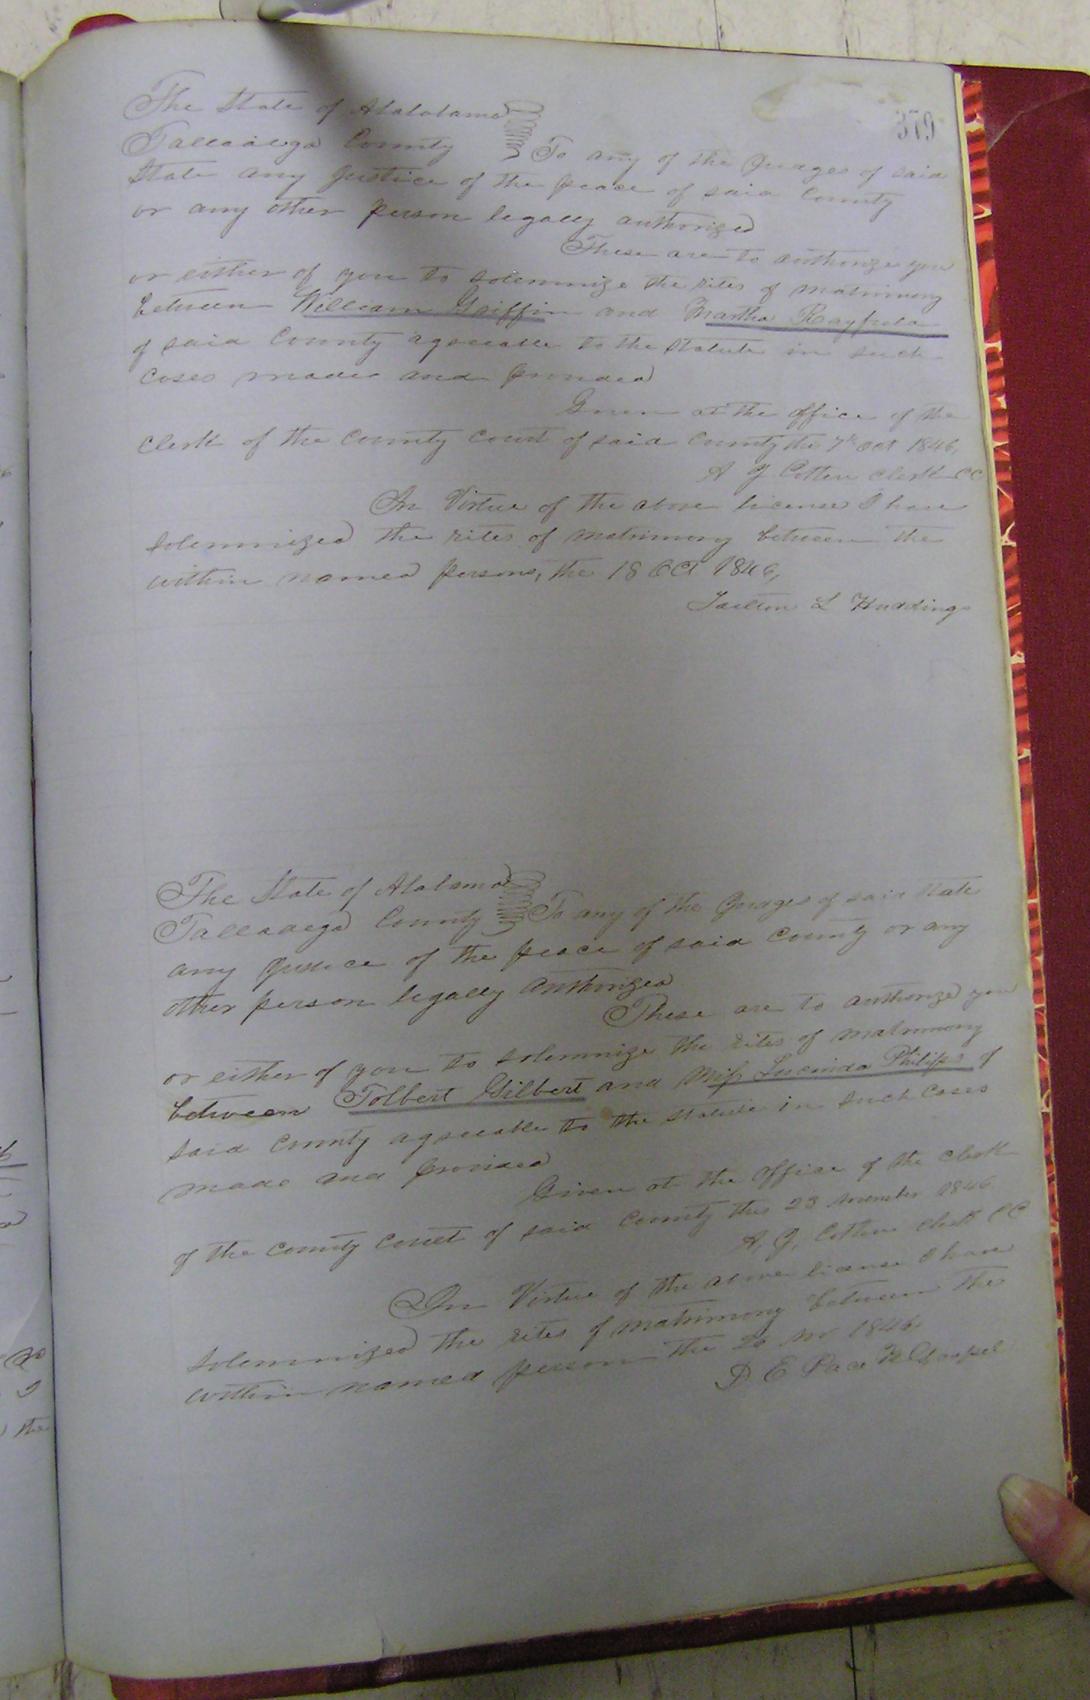 379
The State of Alabama
Talladega County To any of the Judges of said
State any Justice of the peace of said County
or any other person legally authorized
These are to authorize you
or either of you to solemnize the rites of matrimony
between William Griffin and Martha
of said County agreeable to the Statute in such
Cases made and provided
Given at the office of the
Clerk of the County Court of said County the 7th Oct 1846,
A G Cotten Clerk CC
In Virtue of the above license I have
solemnized the rites of matrimony between the
within named persons, the 18 Oct 1846,
L Huddings
The State of Alabama
Talladega County To any of the Judges of said State
any Justice of the peace of said County or any
other person legally authorized
These are to authorize you
or either of you to solemnize the rites of matrimony
between Tolbert Gilbert and Miss Lucinda Philips of
said County agreeable to the Statute in such Cases
made and provided
Given at the office of the Clerk
of the County Court of said County this 23 November 1846
A, G, Cotten Clerk CC
In Virtue of the above license I have
solemnized the rites of matrimony between the
within named person the Nov 1846
D E Pace Gospel
the